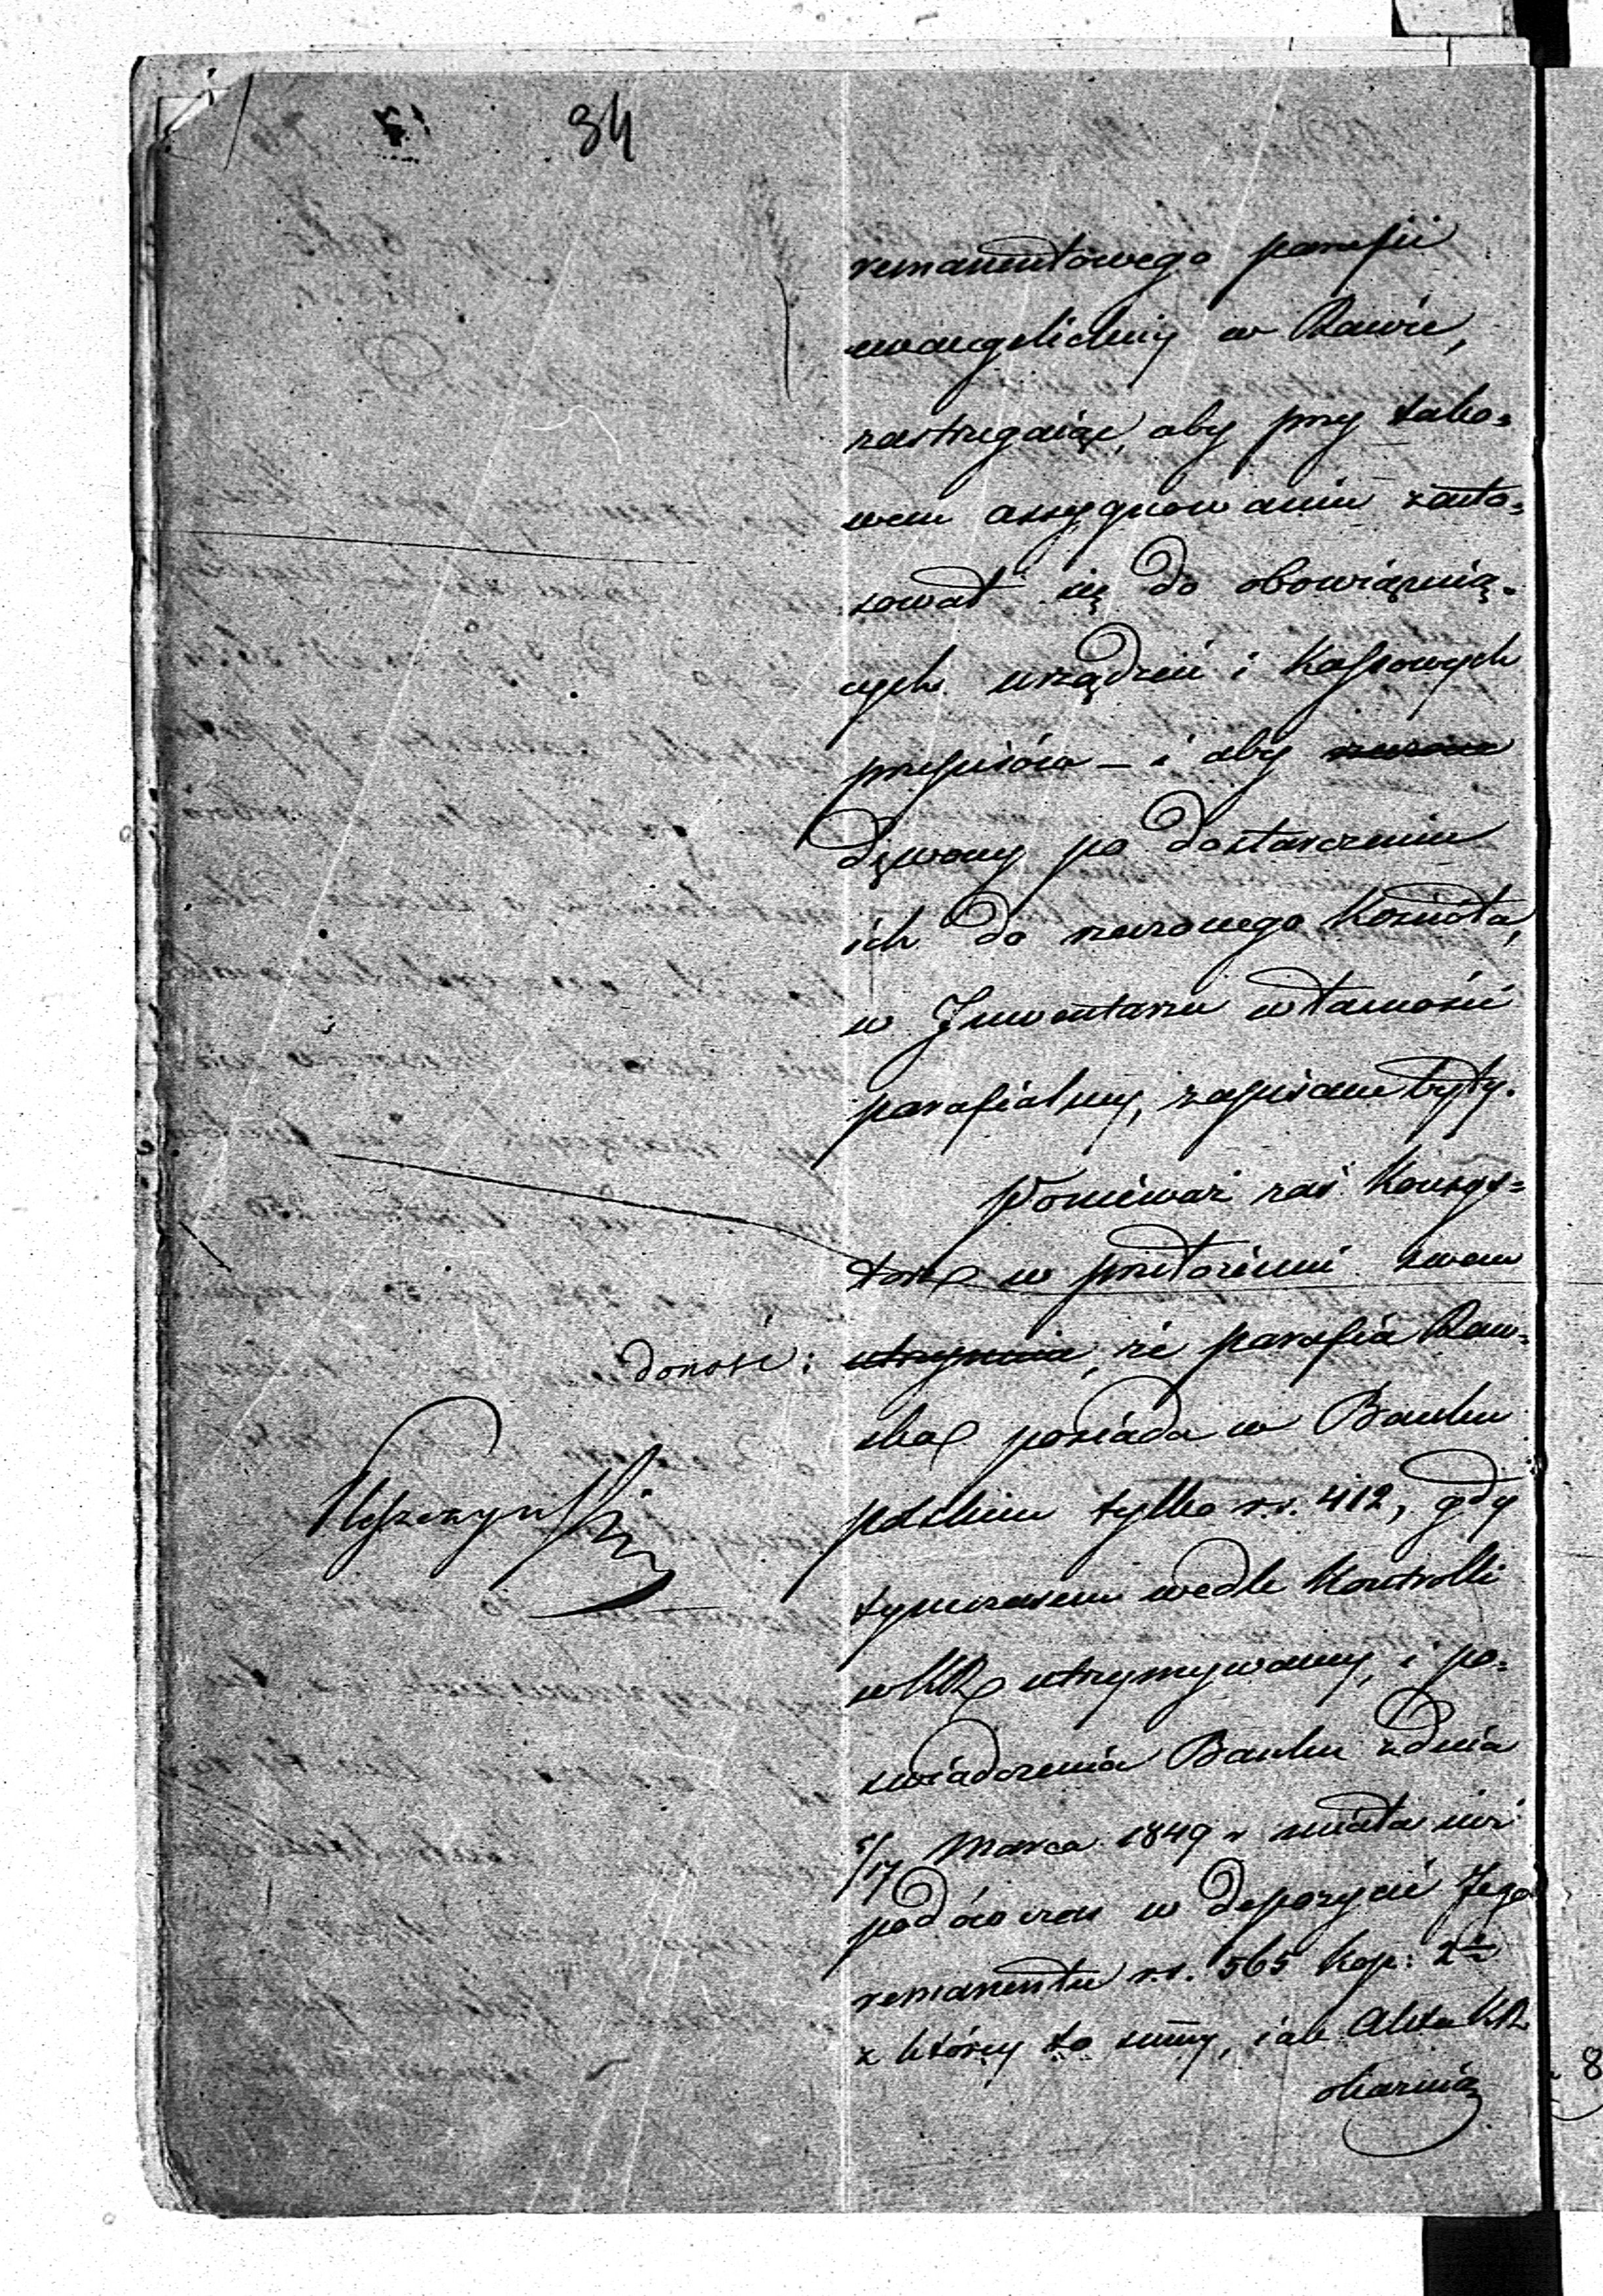 84
remanentowego parafii
ewangelickiéy w Rawie,
zastrzegaiąc, aby przy tako=
wem assygnowaniu zasto=
sował się do obowiązuią=
cych urządzeń i Kassowych
przepisów – i aby
dzwony po dostarczeniu
ich do rzeczonego Kościoła,
w Inwentarzu własności
parafialnéy, zapisane były.
Ponieważ zaś Konsys=
torz w przełożeniu swem
donosi: utrzymuie, że parafia Raw=
ska posiada w Banku
polskim tylko r.s. 412, gdy
tymczasem wedle Kontrolli
w KR utrzymywanéy, i po=
świadczenia Banku z dnia
5/17 Marca 1849 r miała iuż
podówczas w depozycie Jego
remanentu r.s. 565 Kop: 2
z któréy to summy, iak Akta KR
okazuią